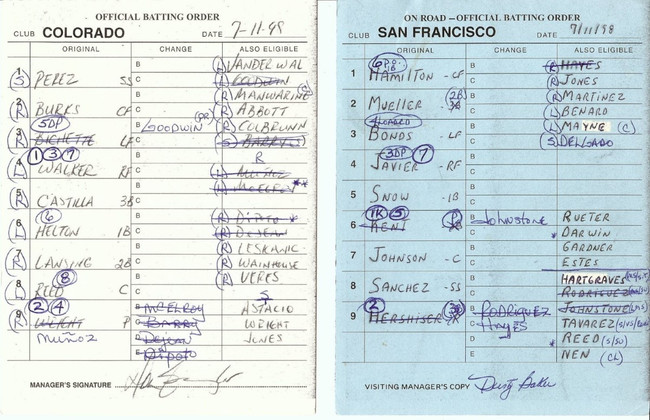 OFFICIAL BATTING ORDER
CLUB COLORADO DATE 7-11-98
ORIGINAL CHANGE ALSO ELIGIBLE
1 (S) PEREZ SS B C (L) VANDERWAL
(L) GOODWIN
2 (R) BURKS CF B C (R) MANWARING (C)
(R) ABBOTT
5DP
3 (R) BICHETTE LF B GOODWIN (PR) C (R) COLBRUNN
(S) BARRY
1 3 7 R
4 (L) WALKER RF B C (L) MUÑOZ
5 (R) CASTILLA 3B B C (L) MCELROY **
6
6 (L) HELTON 1B B C (R) DIPOTO *
(R) DEJEAN
7 (R) LANSING 2B B C (R) LESKANIC
(R) WAINHOUSE
8
8 (L) REED C B C (R) VERES
S
2 4
9 (R) WRIGHT P B MCELROY ASTACIO
MUÑOZ C BARRY WRIGHT
D DEJEAN JONES
E DIPOTO
MANAGER'S SIGNATURE
ON ROAD – OFFICIAL BATTING ORDER
CLUB SAN FRANCISCO DATE 7/11/98
ORIGINAL CHANGE ALSO ELIGIBLE
6
1 HAMILTON - CF B C (R) HAYES
(R) JONES
2 MUELLER - 3B 2B B C (R) MARTINEZ
(L) BENARD
3 BONDS - LF B C (L) MAYNE (C)
(S) DELGADO
3DP 7
4 JAVIER - RF B C
5 SNOW - 1B B C
1K 5
6 KENT B Johnstone C RUETER
* DARWIN
7 JOHNSON - C B C GARDNER
ESTES
8 SANCHEZ - SS B C HARTGRAVES
RODRIGUEZ
2
9 HERSHISER B RODRIGUEZ JOHNSTONE
C Hayes TAVAREZ
D * REED (S/SU)
E NEN (CL)
VISITING MANAGER'S COPY Dusty Baker